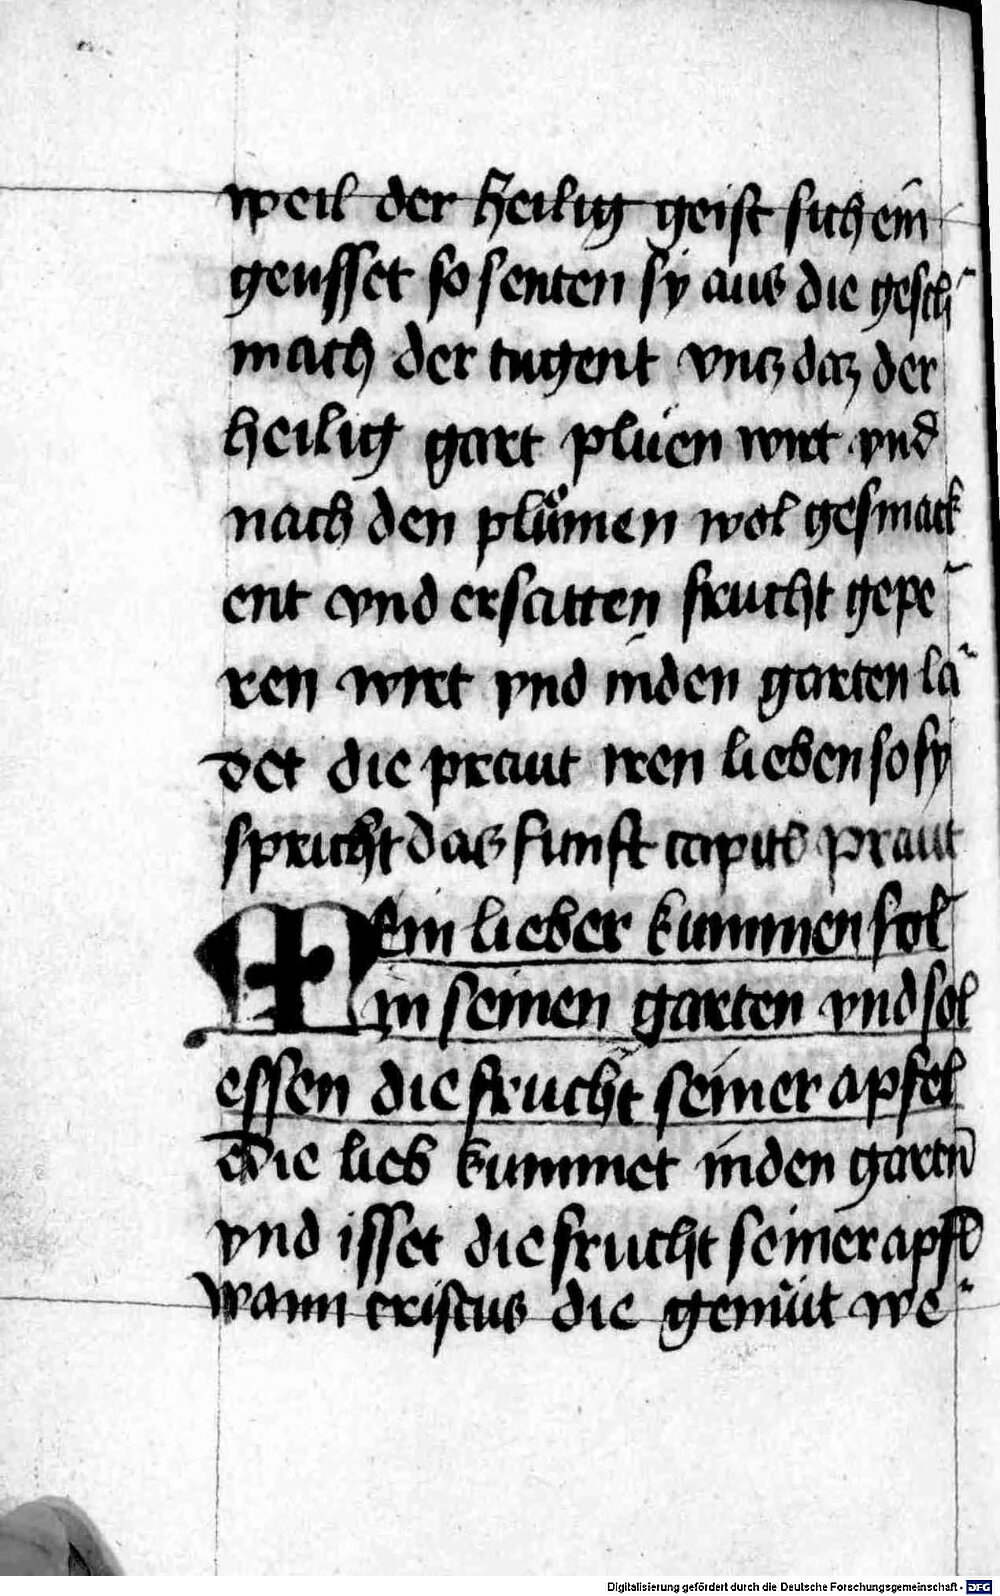 weil der heilig geist sich ein
geusset so senten sy aus die gesch
mach der tugent vntz daz der
heilig gart plüen wirt vnd
nach den plůmen wol gesmack
ent vnd ersatten frucht gepe
ren wirt vnd in den garten la
det die praut iren lieben so sy
spricht das funft capitl praut
Mein lieber kummen sol
in seinen garten vnd sol
essen die frucht seiner apfel
die lieb kummet in den gartn̄
vnd isset die frucht seiner apfl
wann cristus die gemüt we
Digitalisierung gefördert durch die Deutsche Forschungsgemeinschaft - DFG